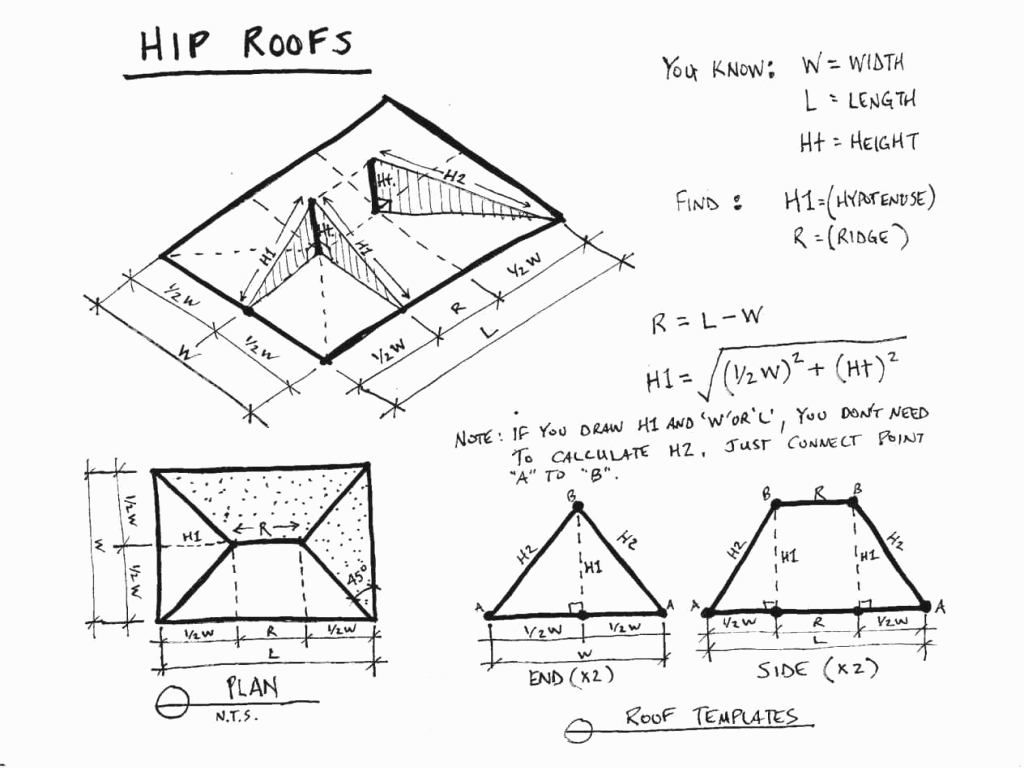 HIP ROOFS
YOU KNOW: W = WIDTH
L = LENGTH
Ht = HEIGHT
FIND : H1=(HYPOTENUSE)
R =(RIDGE)
H2
Ht.
H1
Ht.
H1
1/2 W
1/2 W
W
1/2 W
R
1/2 W
L
R = L - W
H1 = √(1/2 W)² + (Ht)²
NOTE: IF YOU DRAW H1 AND 'W' OR 'L', YOU DON'T NEED
TO CALCULATE H2. JUST CONNECT POINT
"A" TO "B".
W
1/2 W
1/2 W
H1
R
45°
1/2 W R 1/2 W
L
PLAN
N.T.S.
B
H2 H2
H1
A A
1/2 W 1/2 W
W
END (x2)
B R B
H2 H1 H1 H2
A A
1/2 W R 1/2 W
L
SIDE (x2)
ROOF TEMPLATES